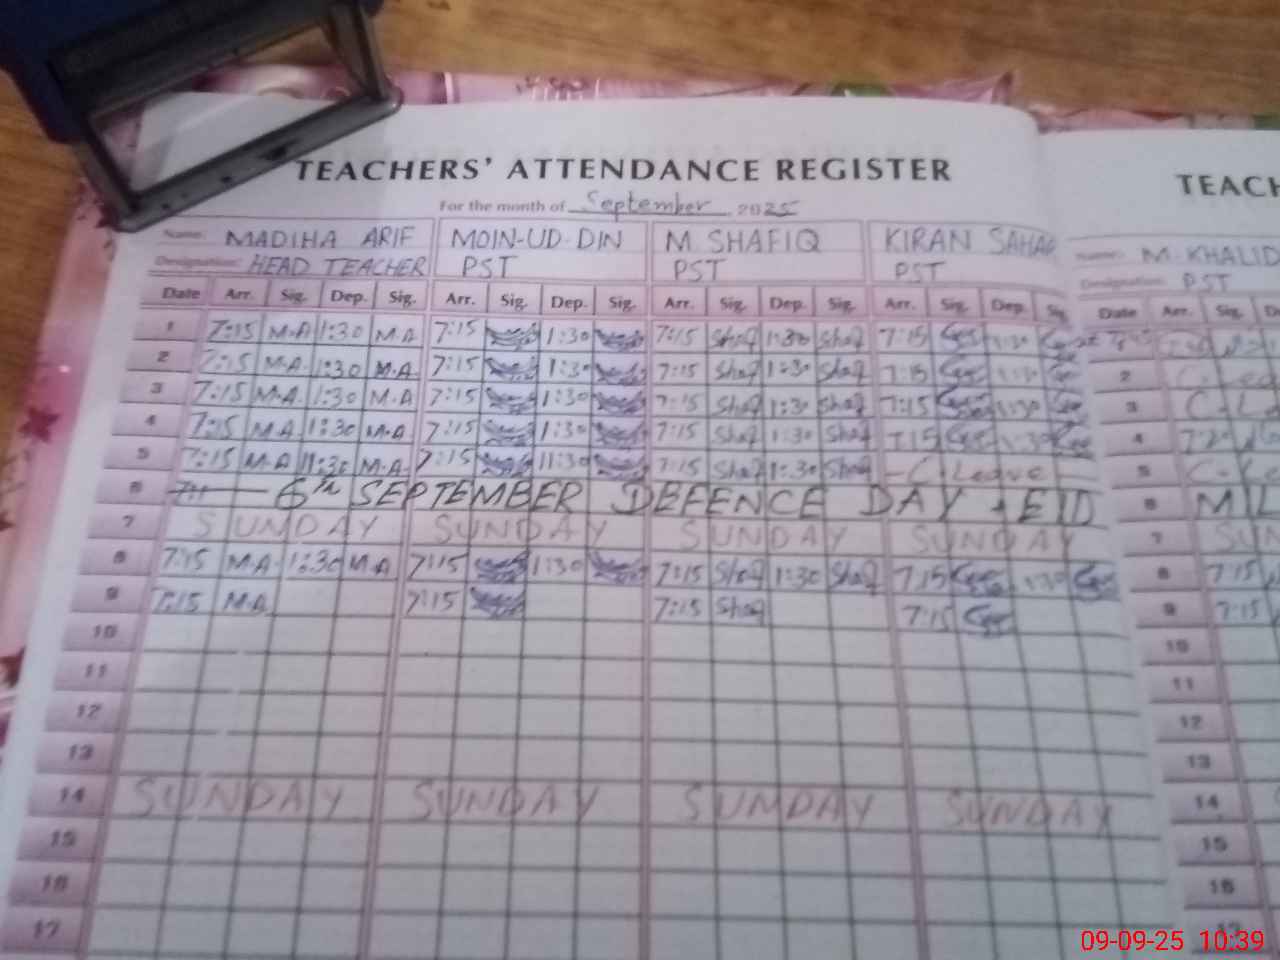 TEACHERS' ATTENDANCE REGISTER
For the month of September 2025
Name: MADIHA ARIF MOIN-UD-DIN M. SHAFIQ KIRAN
Designation: HEAD TEACHER PST PST PST
Date Arr. Sig. Dep. Sig. Arr. Sig. Dep. Sig. Arr. Sig. Dep. Sig. Arr. Sig. Dep. Sig.
1 7:15 M.A 1:30 M.A 7:15 1:30 7:15 Shaf 1:30 Shaf 7:15 1:30
2 7:15 M.A. 1:30 M.A 7:15 1:30 7:15 Shaf 1:30 Shaf 7:15 1:30
3 7:15 M.A. 1:30 M.A 7:15 1:30 7:15 Shaf 1:30 Shaf 7:15 1:30
4 7:15 M.A. 1:30 M.A 7:15 1:30 7:15 Shaf 1:30 Shaf 7:15 1:30
5 7:15 M.A 11:30 M.A. 7:15 11:30 7:15 Shaf 1:30 Shaf C. Leave
6 6th SEPTEMBER DEFENCE DAY + EID
7 SUNDAY SUNDAY SUNDAY SUNDAY
8 7:15 M.A. 1:30 M.A 7:15 1:30 7:15 Shaf 1:30 Shaf 7:15 1:30
9 7:15 M.A. 7:15 7:15 Shaf 7:15
10
11
12
13
14 SUNDAY SUNDAY SUNDAY SUNDAY
15
16
17
TEACH
Name: M. KHALID
Designation: PST
Date Arr. Sig.
2
3
4 7:20
5
6
7
8 7:15
9 7:15
10
11
12
13
14
15
16
09-09-25 10:39